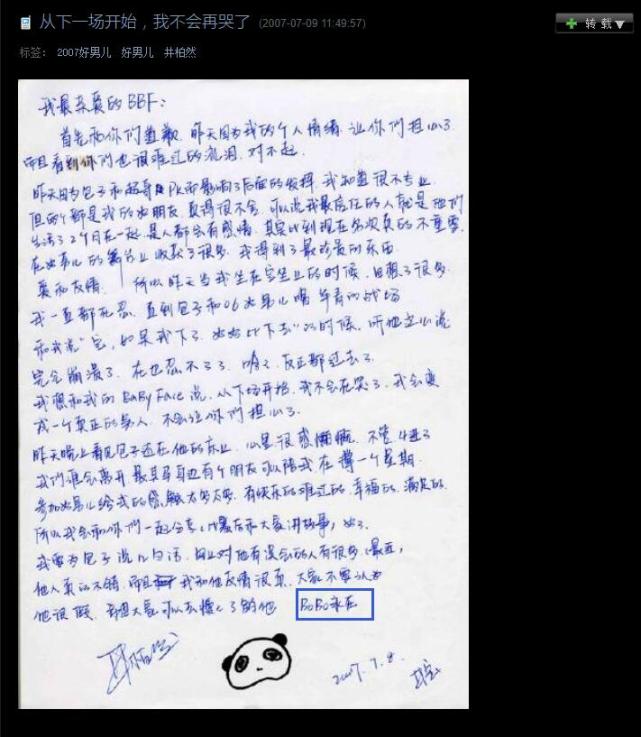 从下一场开始，我不会再哭了 (2007-07-09 11:49:57)
转载▼
标签： 2007好男儿 好男儿 井柏然
我最亲爱的BBF：
首先向你们道歉，昨天因为我的个人情绪，让你们担心了
而且看到你们也很难过的流泪，对不起。
昨天因为包子和超哥PK而影响了后面的发挥，我知道很不专业
但两个都是我的好朋友，真得很不舍，可以说我最信任的人就是他们
生活了2个月在一起，是人都会有感情，其实比到现在名次真的不重要
在好男儿的舞台上收获了很多，我得到了最珍贵的东西
爱和友情 所以昨天当我坐在宝座上的时候，回想了很多
我一直都死忍，直到包子和06好男儿唱 年青的战场
和我说“宝，如果我下了，好好比下去”的时候，听他这么说
完全崩溃了，在也忍不了了，哈哈，反正都过去了
我想和我的Baby Face说，从下场开始，我不会在哭了，我会变
成一个真正的男人，不会让你们担心了。
昨天晚上看见包子还在他的床上，心里很感慨，不管4进3
我们谁会离开，最其码身边有个朋友可以陪我在 一个星期
参加好男儿给我的感触太多太多，有快乐的难过的，幸福的，满足的，
所以我会和你们一起分享，大家讲故事，好了，
我要为包子说几句话，网上对他有误会的人有很多，最近，
他人真的不错，而且 我和他友情很真，大家不要认为
他很 ，希望大家可以去懂 的他 BoBo永在
井柏然
2007.7.8.
井宝